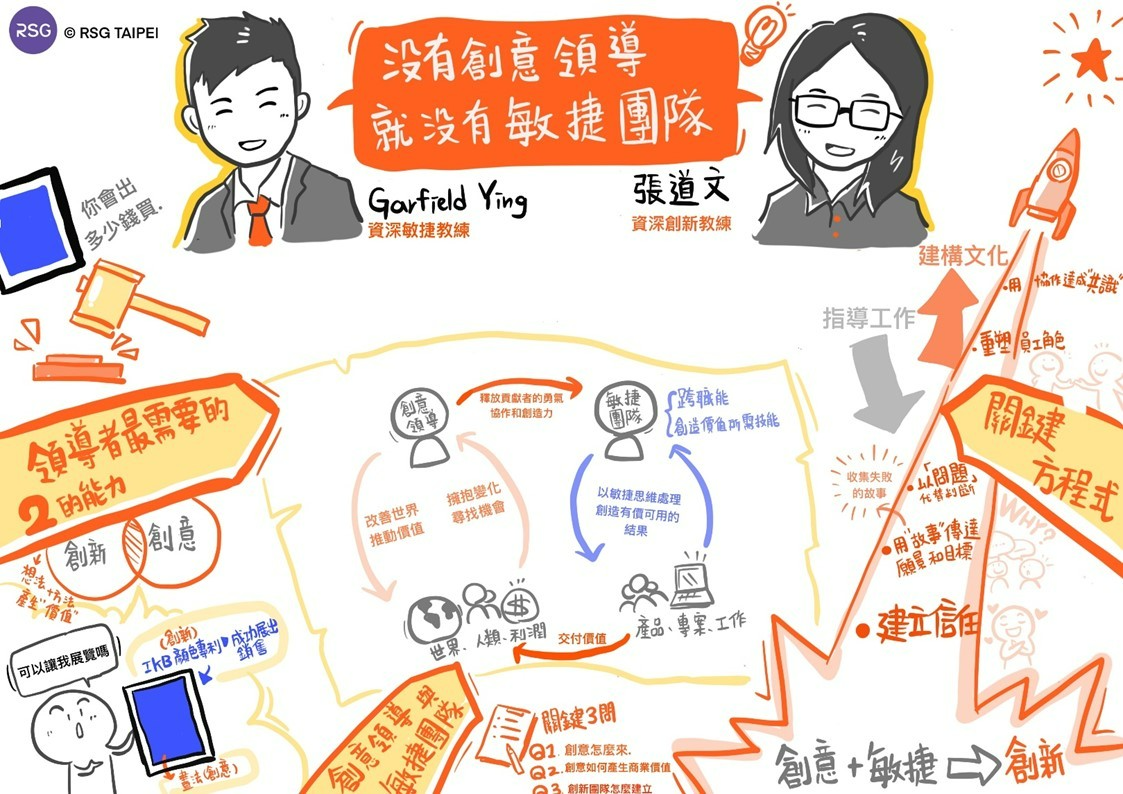 RSG © RSG TAIPEI
没有創意領導
就没有敏捷團隊
Garfield Ying
資深敏捷教練
張道文
資深創新教練
你會出
多少錢買.
領導者最需要的
2的能力
創新
創意
想法、方法
產生"價值"
可以讓我展覽嗎
(創新)
IKB顏色專利 成功展出
銷售
畫法(創意)
創意
領導
釋放貢獻者的勇氣
協作和創造力
敏捷
團隊
跨職能
創造價值所需技能
改善世界
推動價值
擁抱變化
尋找機會
以敏捷思維處理
創造有價可用的
結果
世界、人類、利潤
交付價值
產品、專案、工作
創意領導與
敏捷團隊
關鍵3問
Q1. 創意怎麼來.
Q2. 創意如何產生商業價值
Q3. 創新團隊怎麼建立
建構文化
指導工作
•用 協作達成"共識"
•重塑 員工角色
關鍵
方程式
收集失敗
的故事
•以「問題」
代替判斷
WHY?
•用"故事"傳達
願景和目標
•建立信任
創意+敏捷 創新